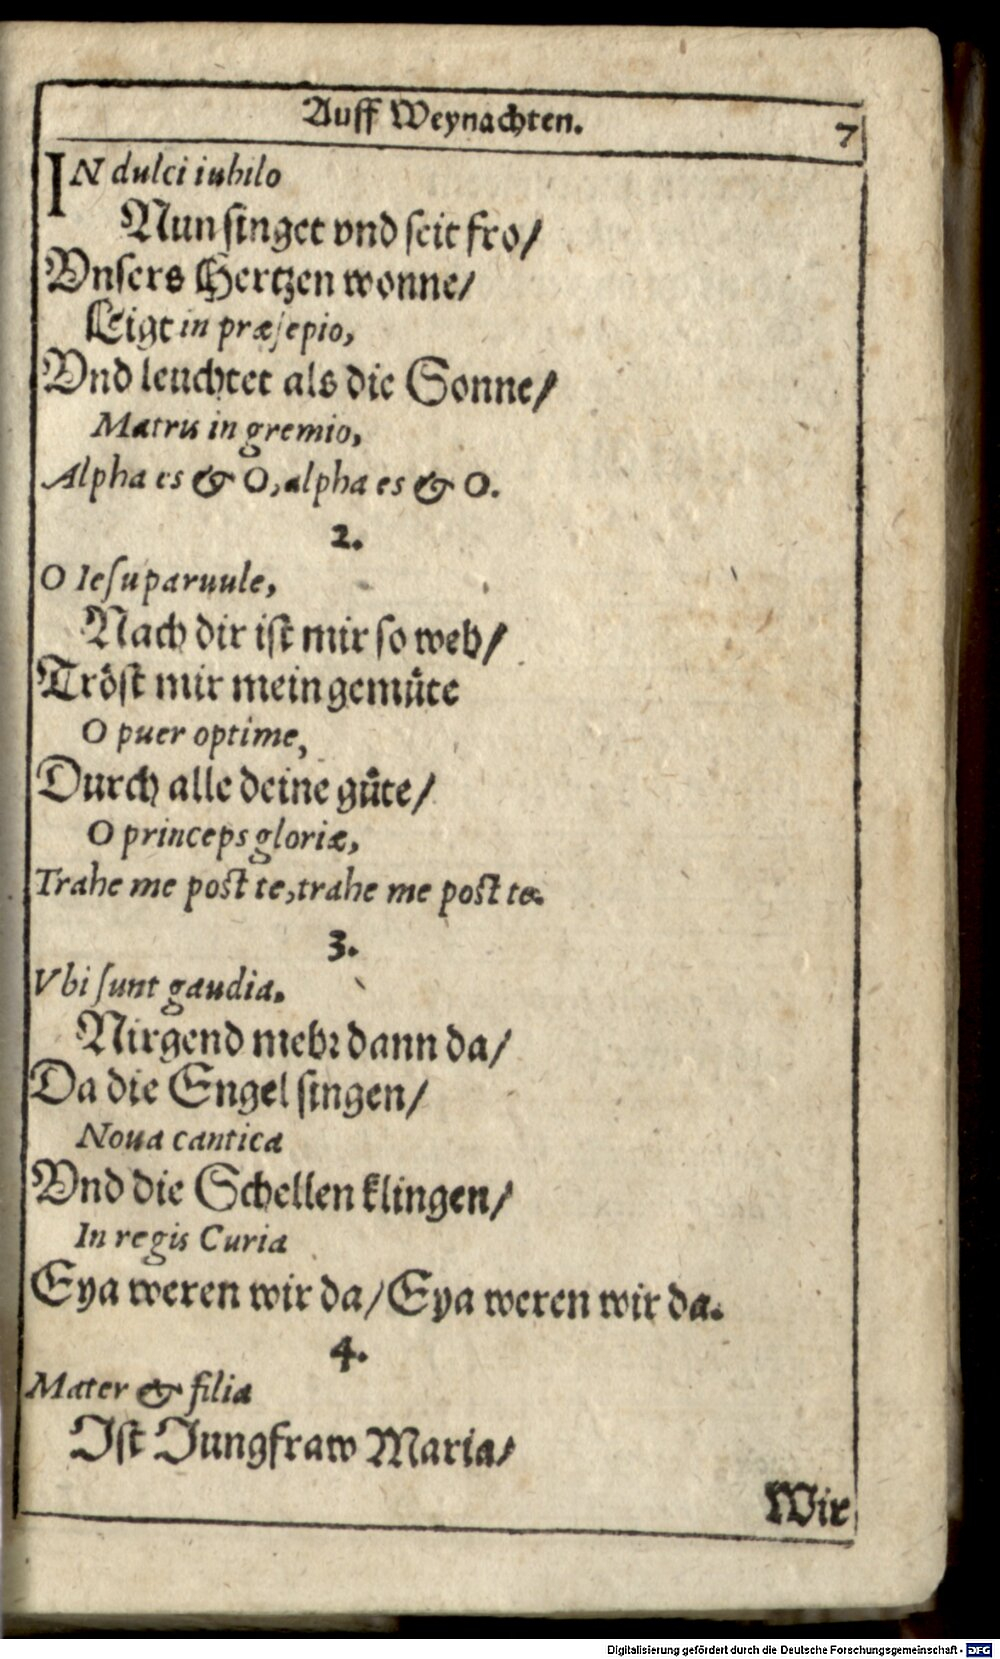 Auff Weynachten.
7
IN dulci iubilo
Nun singet vnd seit fro/
Vnsers Hertzen wonne/
Ligt in præsepio,
Vnd leuchtet als die Sonne/
Matris in gremio,
Alpha es & O, alpha es & O.
2.
O Iesu paruule,
Nach dir ist mir so weh/
Tröst mir mein gemüte
O puer optime,
Durch alle deine güte/
O princeps gloriæ,
Trahe me post te, trahe me post te.
3.
Vbi sunt gaudia.
Nirgend mehr dann da/
Da die Engel singen/
Noua cantica
Vnd die Schellen klingen/
In regis Curia
Eya weren wir da/ Eya weren wir da.
4.
Mater & filia
Ist Jungfraw Maria/
Wir
Digitalisierung gefördert durch die Deutsche Forschungsgemeinschaft - DFG